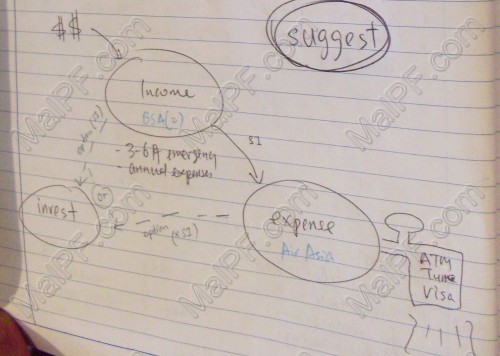 $$
suggest
Income
BSA(2)
SI
- 3-6 emergency
- annual expenses
option (SI)
or
invest
option (SI)
expense
Air Asia
ATM
Tune
Visa
MalPF.com